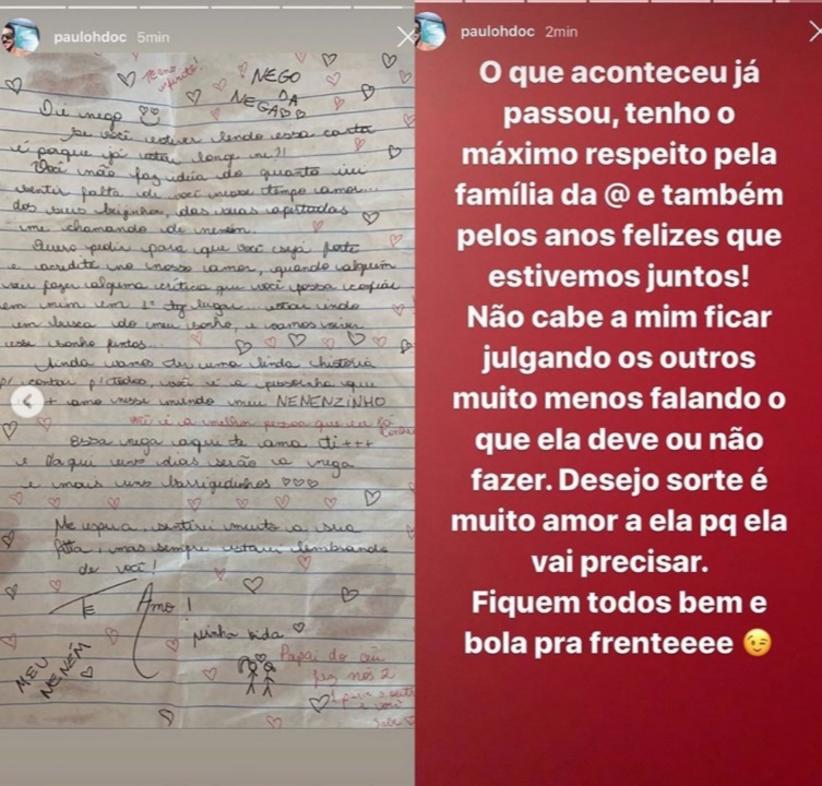 paulohdoc 5min
NEGO
DA
NEGA
Oi nego
Se você estiver lendo essa carta
é porque já estou longe né?!
Você não faz ideia do quanto irei
sentir falta de você nesse tempo amor...
dos seus beijinhos, das suas apertadas
me chamando de neném.
Quero pedir para que você seja forte
e acredite no nosso amor, quando alguém
fazer alguma crítica que você possa confiar
em mim em 1º lugar... estou indo
em busca do meu sonho, e vamos viver
esse sonho juntos...
Ainda vamos ter uma linda história
p/ contar p/ todos, você é a pessoinha que
+ amo nesse mundo meu NENENZINHO
você é a melhor pessoa que eu
essa nega aqui te ama ti+++
e daqui uns dias serão a nega
e mais uns barrigudinhos
Me espera, sentirei muito a sua
falta, mas sempre estarei lembrando
de você!
TE Amo!
minha vida
MEU
NENÉM
Papai do céu
fez nós 2
1 para o outro
e você
sabe
paulohdoc 2min
O que aconteceu já
passou, tenho o
máximo respeito pela
família da @ e também
pelos anos felizes que
estivemos juntos!
Não cabe a mim ficar
julgando os outros
muito menos falando o
que ela deve ou não
fazer. Desejo sorte é
muito amor a ela pq ela
vai precisar.
Fiquem todos bem e
bola pra frenteeee 😉